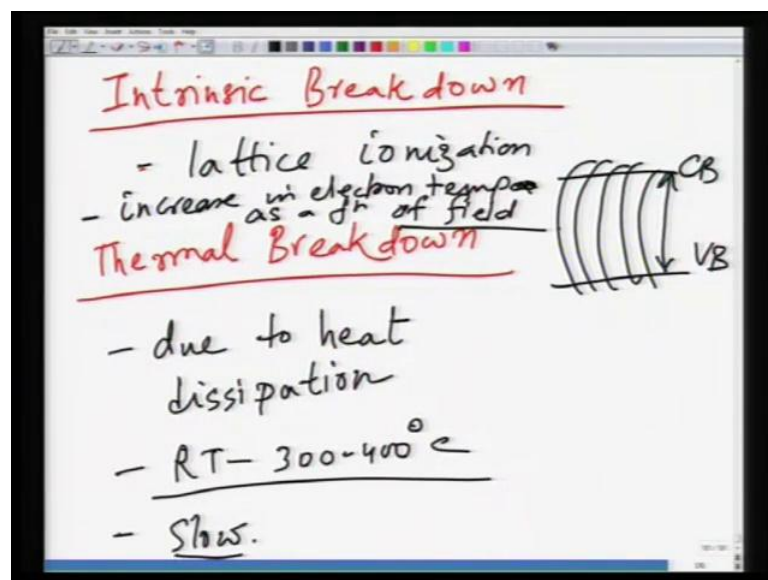 Intrinsic Breakdown
- lattice ionization
- increase in electron temp
as a fn of field
CB
VB
Thermal Breakdown
- due to heat
dissipation
- RT - 300-400°C
- Slow.